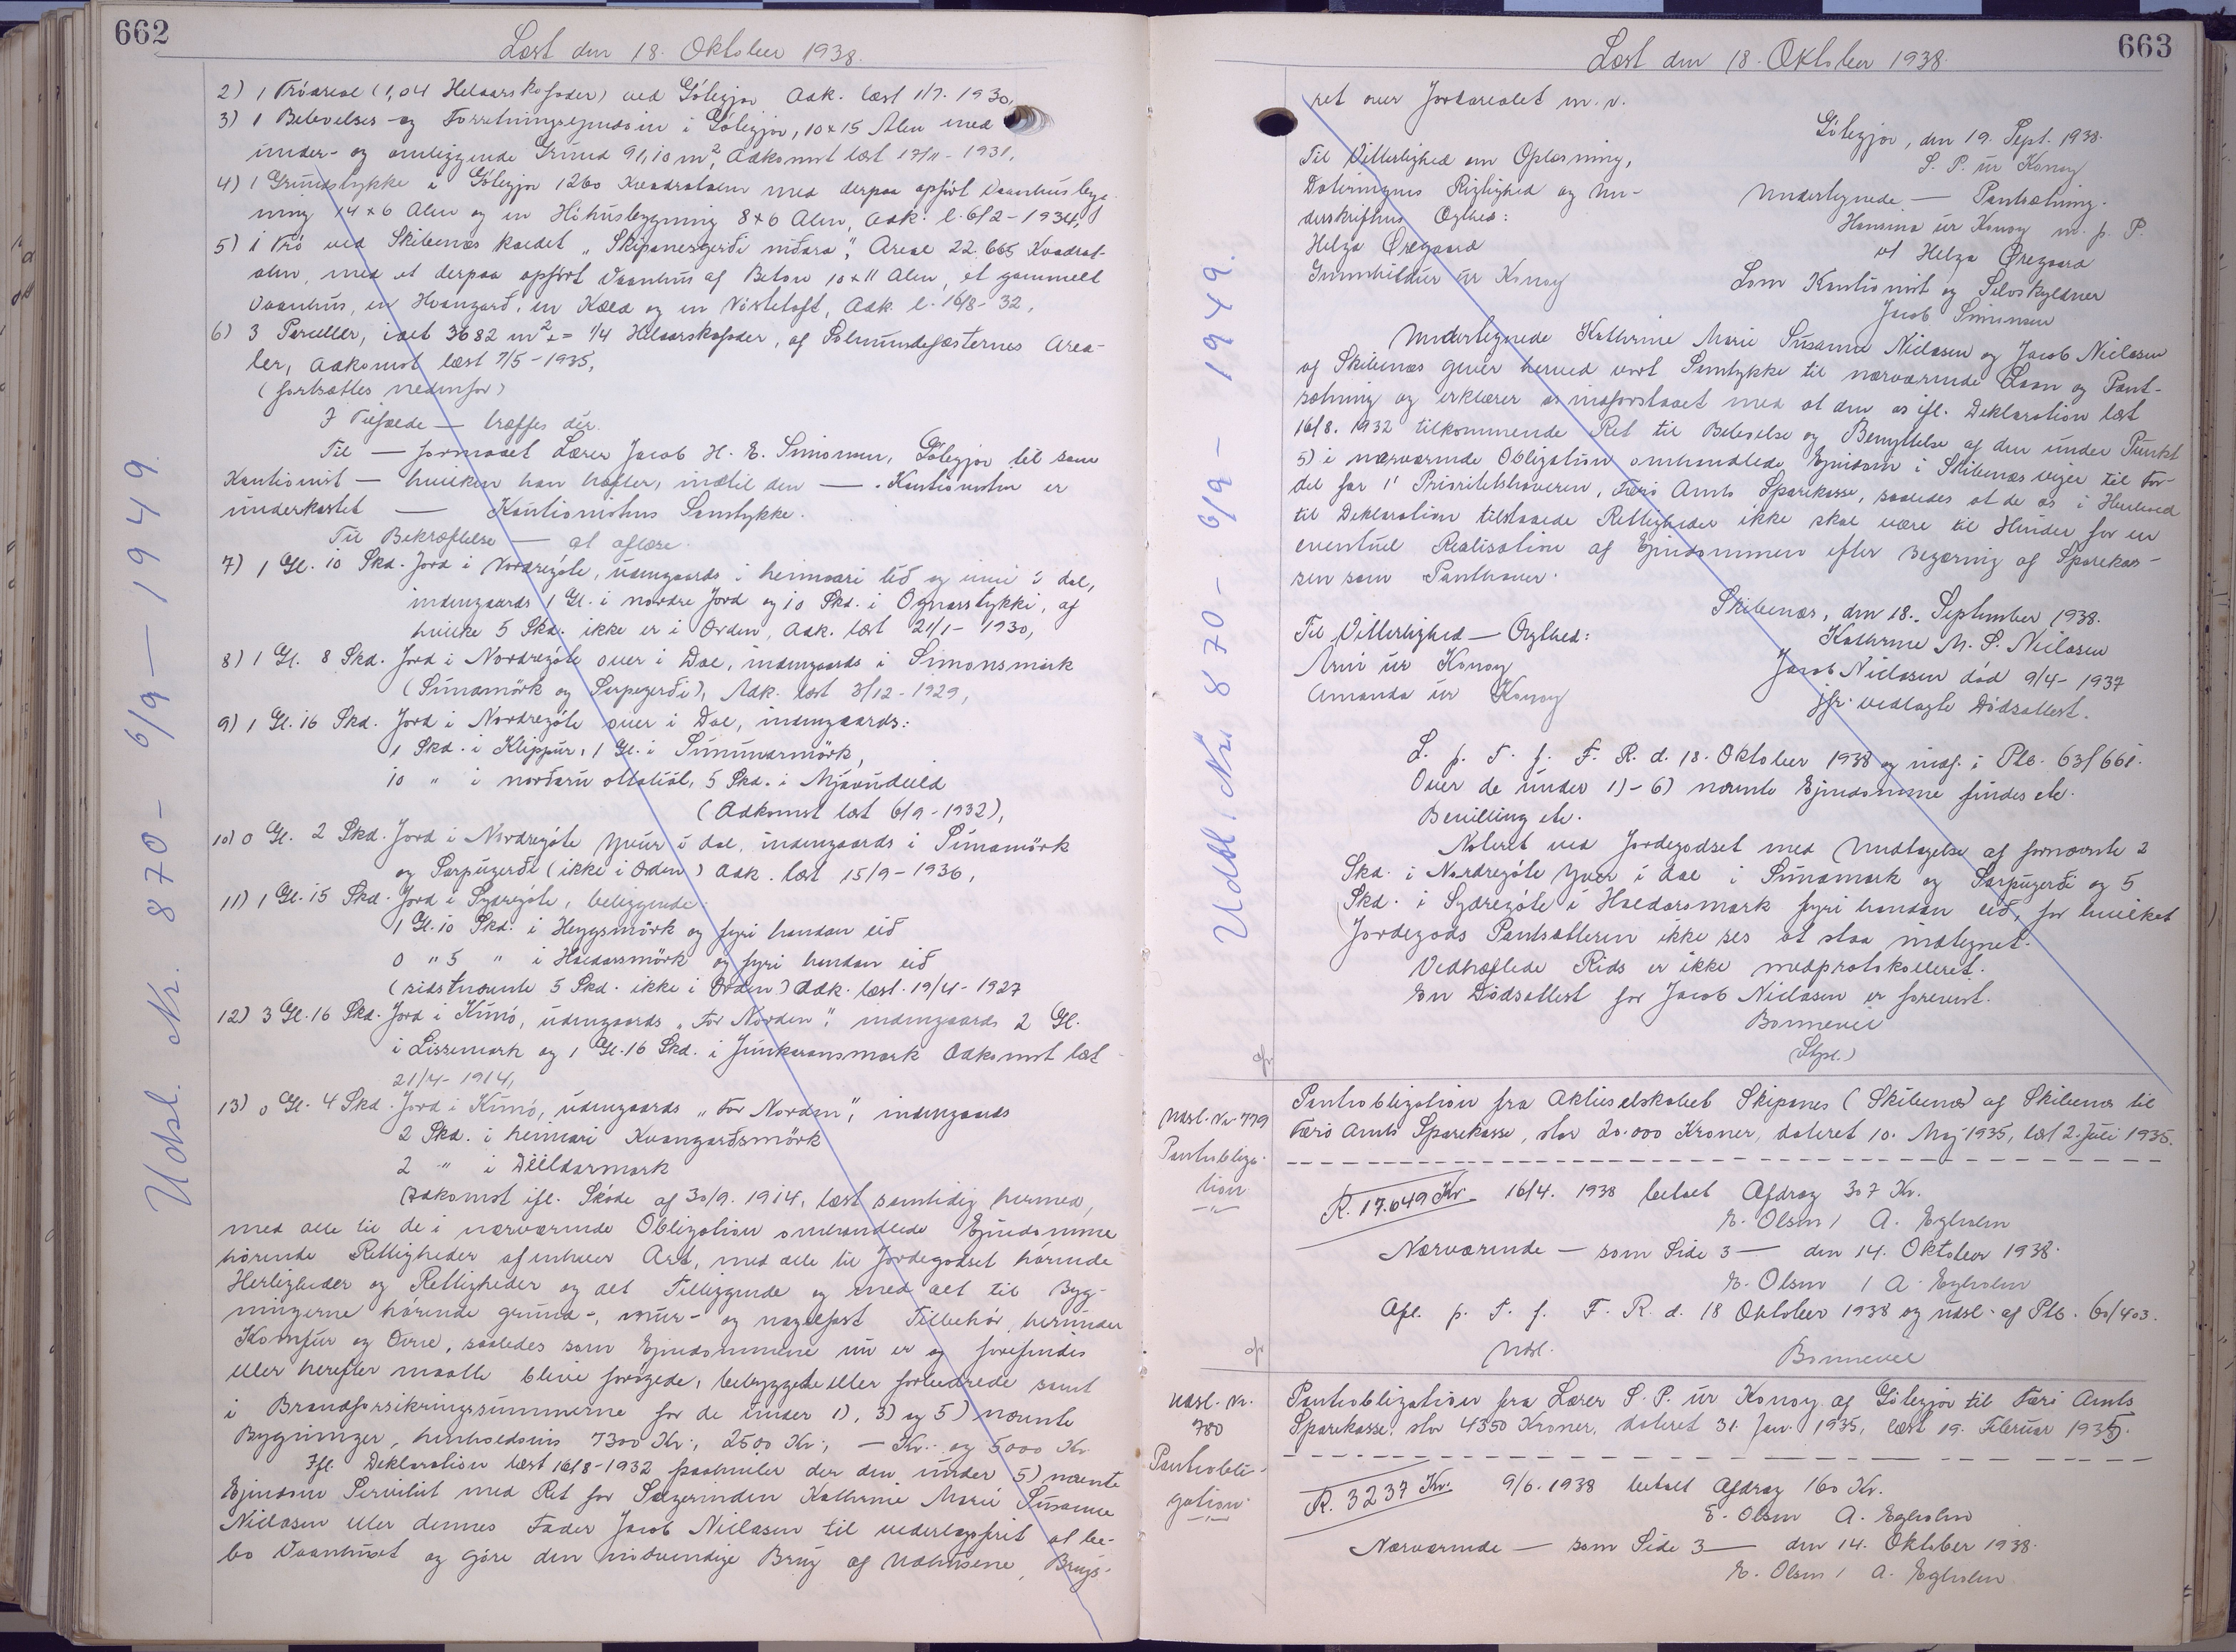 662
Læst den 18. Oktober 1938.
2) 1 Tröareal (1,04 Helaarskofoder) ved Götegjov, Adk. læst 1/7. 1930,
3) 1 Beboelses- og Forretningsejendom i Götegjov, 10 x 15 Alen med
under- og omliggende Grund 91,10 m², Adkomst læst 17/11 - 1931,
4) 1 Grundstykke i Götegjov 1260 Kvadratalen med derpaa opført Vaanhusbyg-
ning 14 x 6 Alen og en Höhusbygning 8 x 6 Alen, Adk. l. 6/2 - 1934,
5) 1 Trö ved Skibenæs kaldet "Skipanesgerði niðara", Areal 22.665 Kvadrat-
alen, med et derpaa opført Vaanhus af Beton 10 x 11 Alen, et gammelt
Vaanhus, en Hvangarð, en Kæld og en Nöstetoft, Adk. l. 16/8 - 32,
6) 3 Parceller, ialt 3682 m² = 1/4 Helaarskofoder, af Pólmundefæsternes Area-
ler, Adkomst læst 7/5 - 1935,
(fortsættes nedenfor)
I Tilfælde — træffes dér.
Til — formaaet Lærer Jacob H. E. Simonsen, Götegjov til som
Kautionist — hvilken han hæfter, indtil den — . Kautionisten er
underkastet — Kautionistens Samtykke.
Til Bekræftelse — at aflæse.
7) 1 Gl. 10 Skd. Jord i Nordregöte, udengaards i heimari lið og inni í dal,
indengaards 1 Gl. i nordre Jord og 10 Skd. i Ognarstykki, af
hvilke 5 Skd. ikke er i Orden, Adk. læst 21/1 - 1930,
8) 1 Gl. 8 Skd. Jord i Nordregöte over i Dal, indengaards i Simonsmörk
(Súnamörk og Sorpugerði), Adk. læst 3/12 - 1929,
9) 1 Gl. 16 Skd. Jord i Nordregöte over i Dal, indengaards:
1 Skd. i Klippur, 1 Gl. i Súnunarmörk,
10 " i norðaru ottatiól, 5 Skd. i Mjóvudeild
(Adkomst læst 6/9 - 1932),
10) 0 Gl. 2 Skd. Jord i Nordregöte yvur í dal, indengaards i Súnamörk
og Sorpugerði (ikke i Orden) Adk. læst 15/9 - 1936,
11) 1 Gl. 15 Skd. Jord i Sydregöte, beliggende.
1 Gl. 10 Skd. i Heygsmörk og fyri handan eið
0 " 5 " i Haldarsmörk og fyri handan eið
(sidstnævnte 5 Skd. ikke i Orden) Adk. læst. 19/4 - 1927
12) 3 Gl. 16 Skd. Jord i Kunö, udengaards "For Norden", indengaards 2 Gl.
i Lissemark og 1 Gl. 16 Skd. i Junkaransmark Adkomst læst
21/4 - 1914,
13) 0 Gl. 4 Skd. Jord i Kunö, udengaards "For Norden", indengaards
2 Skd. i heimari Kvangarðsmörk
2 " i Deildarmark
Adkomst ifl. Sköde af 30/9. 1914, læst samtidig hermed,
med alle til de i nærværende Obligation omhandlede Ejendomme
hörende Rettigheder af enhver Art, med alle til Jordegodset hörende
Herligheder og Rettigheder og alt Tilliggende og med alt til Byg-
ningerne hörende grund-, mur- og nagelfast Tilbehör, herunder
Komfur og Ovne, saaledes som Ejendommene nu er og forefindes
eller herefter maatte blive forögede, bebyggede eller forbedrede samt
i Brandforsikringssummerne for de under 1), 3) og 5) nævnte
Bygninger, henholdsvis 7300 Kr., 2500 Kr., — Kr. og 5000 Kr.
Ifl. Deklaration læst 16/8 - 1932 paahviler der den under 5) nævnte
Ejendom Servitut med Ret for Sælgerinden Kathrine Marie Susanne
Niclasen eller dennes Fader Jacob Niclasen til vederlagsfrit at be-
bo Vaanhuset og göre den nödvendige Brug af Udhusene, Brugs-
Udsl. Nr. 870 - 6/9 - 1949
663
Læst den 18. Oktober 1938.
ret over Jordarealet m.v.
Götegjov, den 19. Sept. 1938.
S. P. úr Konoy
Til Vitterlighed om Oplæsning,
Dateringens Rigtighed og Un-
derskriftens Ægthed:
Helga Øregaard
Gunnhildur úr Konoy
Undertegnede — Pantsætning.
Hansina úr Konoy m. p. P.
v/ Helga Øregaard
Som Kautionist og Selvskyldner
Jacob Simonsen
Undertegnede Kathrine Marie Susanne Niclasen og Jacob Niclasen
af Skibenæs giver herved vort Samtykke til nærværende Laan og Pant-
sætning og erklærer os indforstaaet med at den os ifl. Deklaration læst
16/8. 1932 tilkommende Ret til Beboelse og Benyttelse af den under Punkt
5) i nærværende Obligation omhandlede Ejendom i Skibenæs viger til For-
del for 1' Prioritetshaveren, Færö Amts Sparekasse, saaledes at de os i Henhold
til Deklaration tilstaaede Rettigheder ikke skal være til Hinder for en
eventuel Realisation af Ejendommen efter Begæring af Sparekas-
sen som Panthaver.
Skibenæs, den 18. September 1938.
Til Vitterlighed — Ægthed:
Arni úr Konoy
Amanda úr Konoy
Kathrine M. S. Niclasen
Jacob Niclasen död 9/4 - 1937
jfr. vedlagte Dödsattest.
L. p. T. f. F. R. d. 18. Oktober 1938 og indf. i Ptb. 63/661.
Over de under 1) - 6) nævnte Ejendomme findes etc.
Bevilling etc.
Noteret ved Jordegodset med Undtagelse af fornævnte 2
Skd. i Nordregöte yver í dal i Súnamark og Sorpugerði og 5
Skd. i Sydregöte i Haldarsmark fyri handan eið, for hvilket
Jordegods Pantsætteren ikke ses at staa indtegnet.
Vedhæftede Rids er ikke medprotokolleret.
En Dödsattest for Jacob Niclasen er forevist.
Bonnevie
(Stpl.)
Udsl. Nr. 870 - 6/9 - 1949.
Udsl. Nr. 779
Pantobliga-
tion
Pantobligation fra Aktieselskabet Skipanes (Skibenæs) af Skibenæs til
Færö Amts Sparekasse, stor 20.000 Kroner, dateret 10. Maj 1935, læst 2. Juli 1935.
R. 17.649 Kr. 16/4. 1938 betalt Afdrag 307 Kr.
E. Olsen / A. Egholm
Nærværende — som Side 3 — den 14. Oktober 1938.
E. Olsen / A. Egholm
Afl. p. T. f. F. R. d. 18 Oktober 1938 og udsl. af Ptb. 60/403.
Udsl. Bonnevie
Udsl. Nr.
780
Pantobli-
gation
Pantobligation fra Lærer S. P. úr Konoy af Götegjov til Færö Amts
Sparekasse, stor 4350 Kroner, dateret 31. Jan. 1935, læst 19. Februar 1935.
R. 3237 Kr. 9/6. 1938 betalt Afdrag 160 Kr.
E. Olsen A. Egholm
Nærværende — som Side 3 — den 14. Oktober 1938.
E. Olsen / A. Egholm